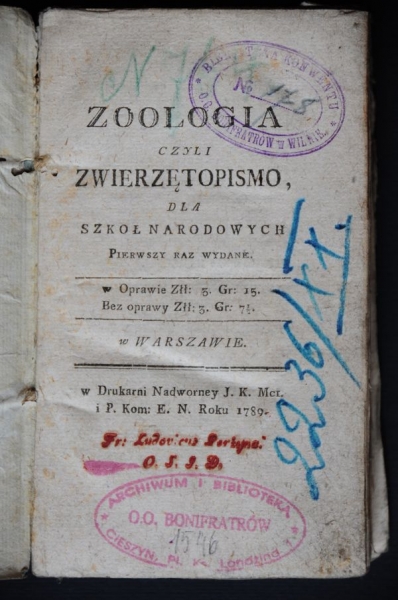 N 7
BIBLIOTEKA KONWENTU
OO. BONIFRATRÓW W WILNIE
№ 178
ZOOLOGIA
CZYLI
ZWIERZĘTOPISMO,
DLA
SZKOŁ NARODOWYCH
PIERWSZY RAZ WYDANE.
w Oprawie Złł: 5. Gr: 15.
Bez oprawy Złł: 3. Gr: 7½.
w WARSZAWIE.
w Drukarni Nadworney J. K. Mci.
i P. Kom: E. N. Roku 1789.
2236/II.
Fr: Ludovicus
O. S. J. D.
ARCHIWUM I BIBLIOTEKA
O.O. BONIFRATRÓW
1546
CIESZYN, Pl. Ks. Londzina 1